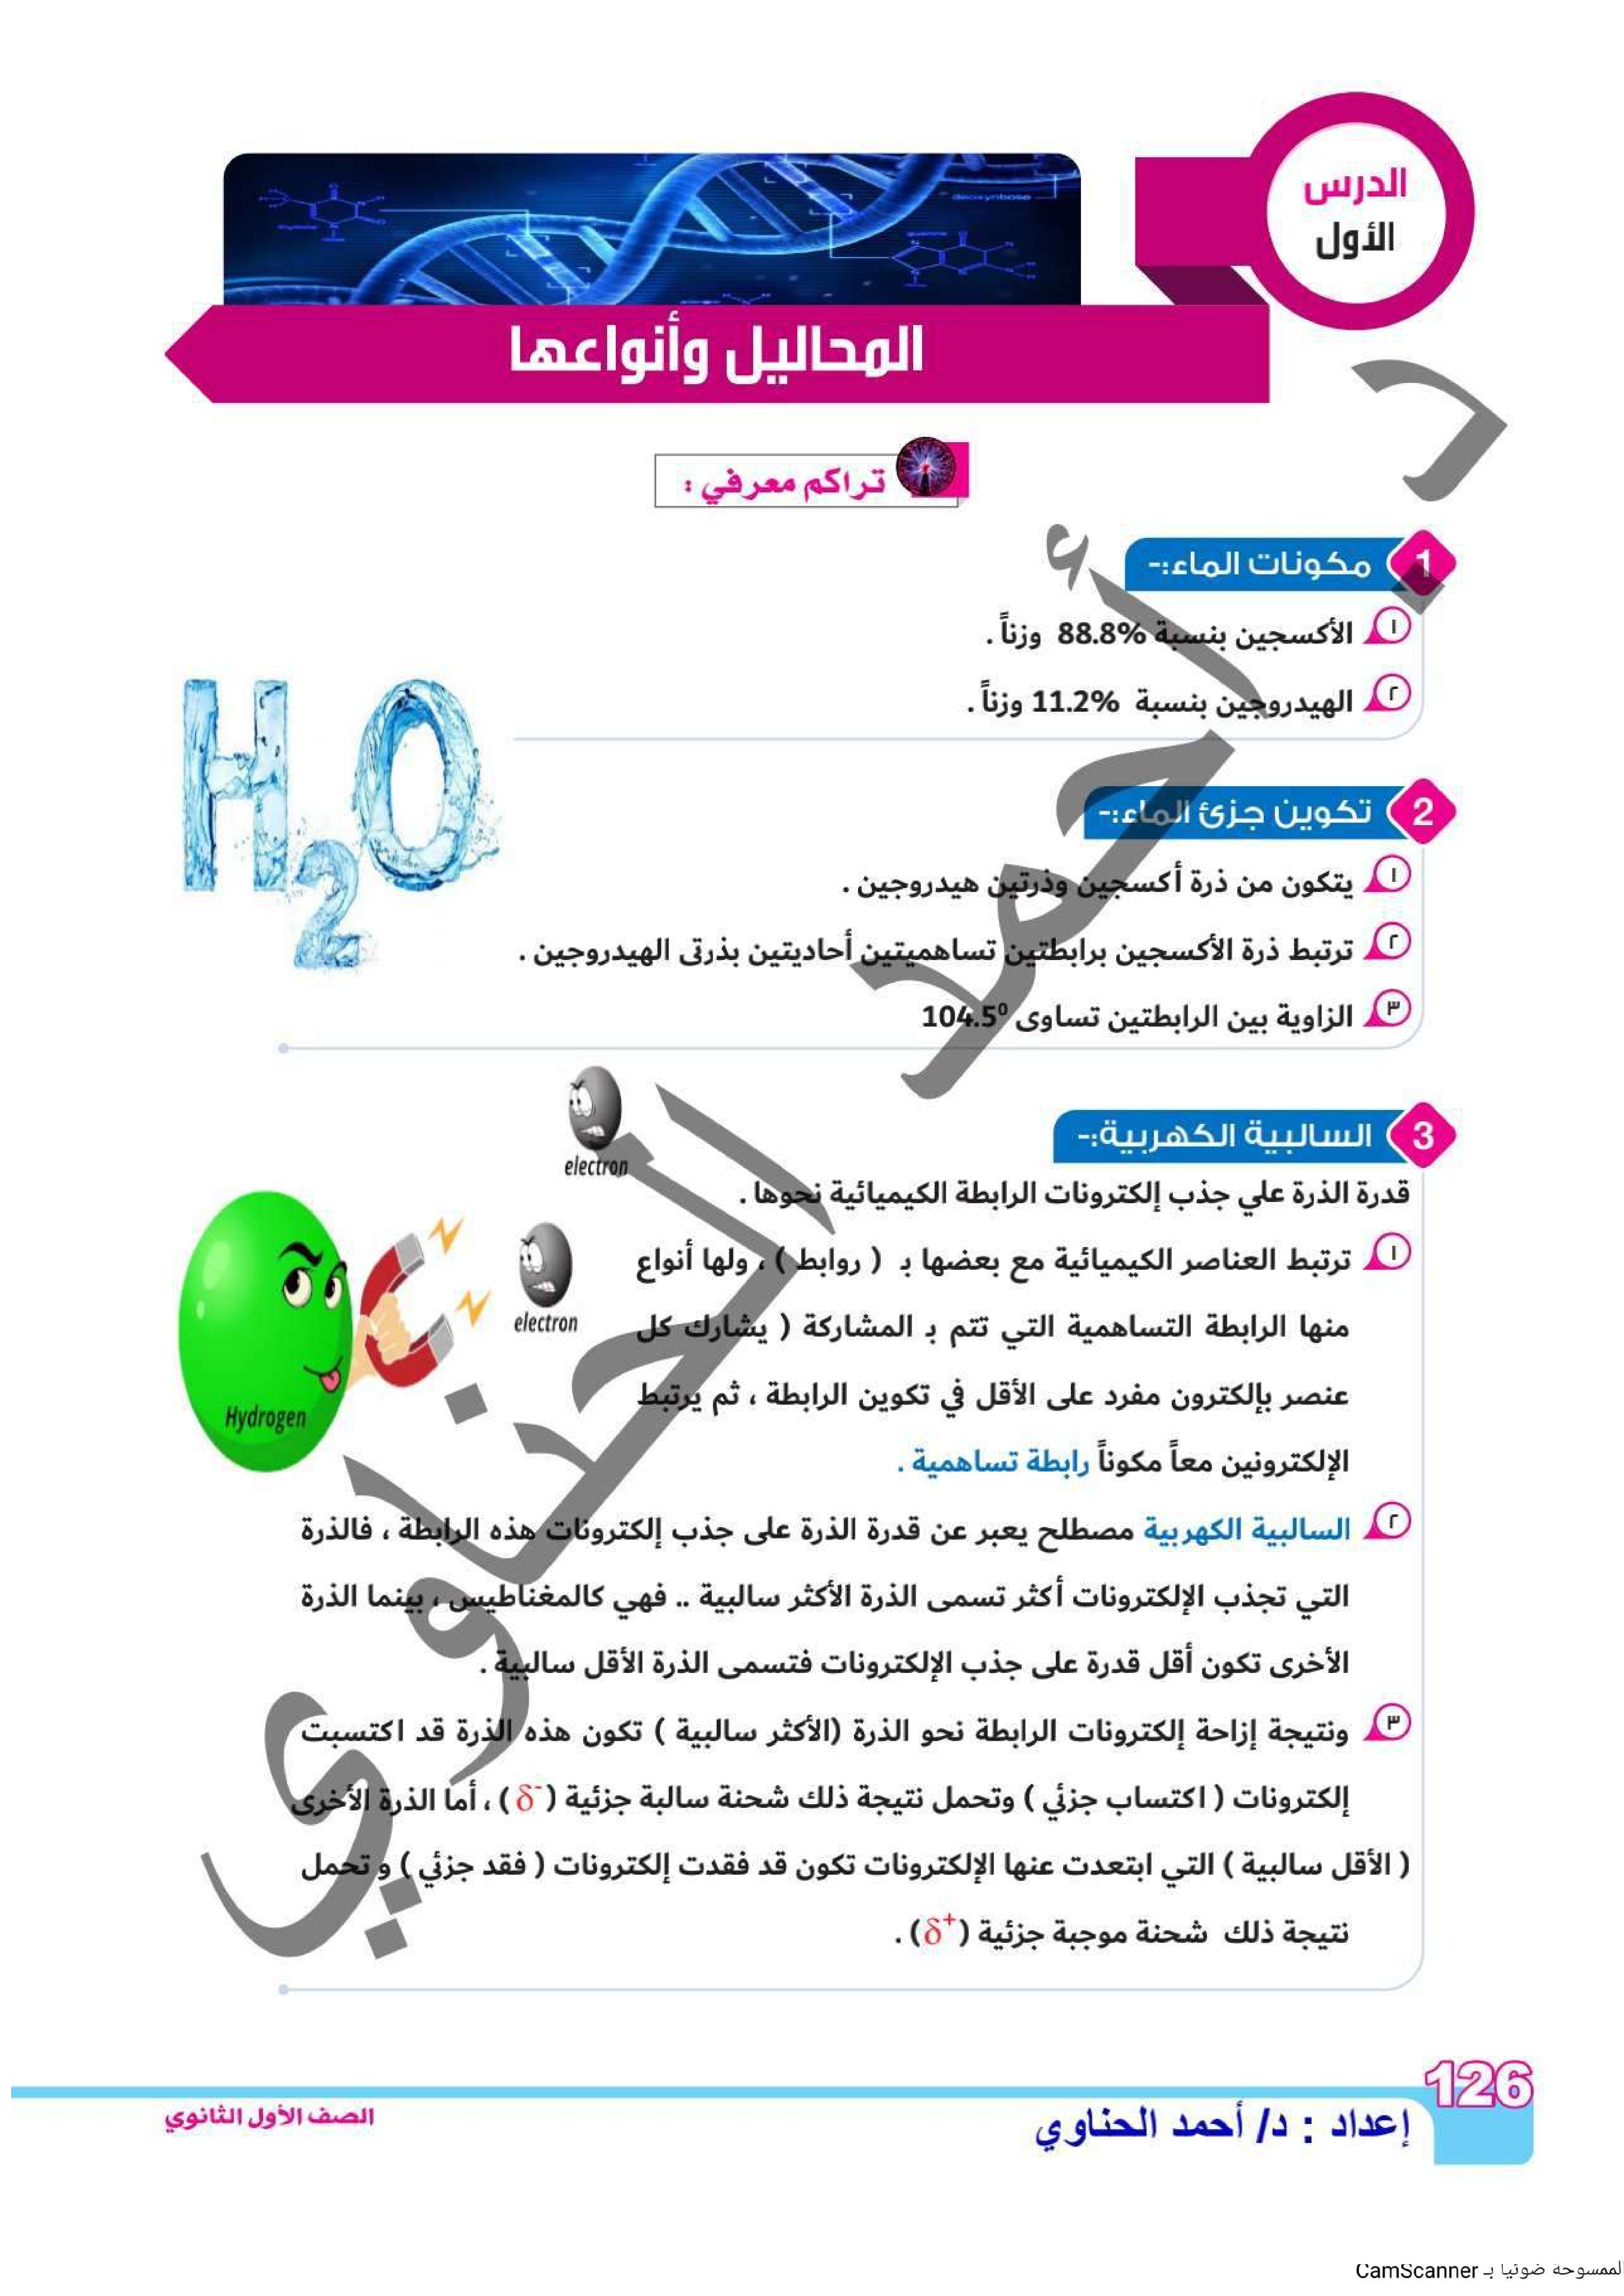 الدرس
الأول
deoxyribose
المحاليل وأنواعها
تراكم معرفي :
1 مكونات الماء:-
١ الأكسجين بنسبة 88.8% وزناً .
٢ الهيدروجين بنسبة 11.2% وزناً .
H2O
2 تكوين جزئ الماء:-
١ يتكون من ذرة أكسجين وذرتين هيدروجين .
٢ ترتبط ذرة الأكسجين برابطتين تساهميتين أحاديتين بذرتى الهيدروجين .
٣ الزاوية بين الرابطتين تساوى 104.5⁰
3 السالبية الكهربية:-
electron
قدرة الذرة علي جذب إلكترونات الرابطة الكيميائية نحوها .
١ ترتبط العناصر الكيميائية مع بعضها بـ ( روابط ) ، ولها أنواع
electron
منها الرابطة التساهمية التي تتم بـ المشاركة ( يشارك كل
عنصر بإلكترون مفرد على الأقل في تكوين الرابطة ، ثم يرتبط
Hydrogen
الإلكترونين معاً مكوناً رابطة تساهمية .
٢ السالبية الكهربية مصطلح يعبر عن قدرة الذرة على جذب إلكترونات هذه الرابطة ، فالذرة
التي تجذب الإلكترونات أكثر تسمى الذرة الأكثر سالبية .. فهي كالمغناطيس ، بينما الذرة
الأخرى تكون أقل قدرة على جذب الإلكترونات فتسمى الذرة الأقل سالبية .
٣ ونتيجة إزاحة إلكترونات الرابطة نحو الذرة (الأكثر سالبية ) تكون هذه الذرة قد اكتسبت
إلكترونات ( اكتساب جزئي ) وتحمل نتيجة ذلك شحنة سالبة جزئية (δ⁻ ) ، أما الذرة الأخرى
( الأقل سالبية ) التي ابتعدت عنها الإلكترونات تكون قد فقدت إلكترونات ( فقد جزئي ) و تحمل
نتيجة ذلك شحنة موجبة جزئية (δ⁺) .
د. أحمد الحناوي
126
إعداد : د/ أحمد الحناوي
الصف الأول الثانوي
الممسوحة ضوئيا بـ CamScanner